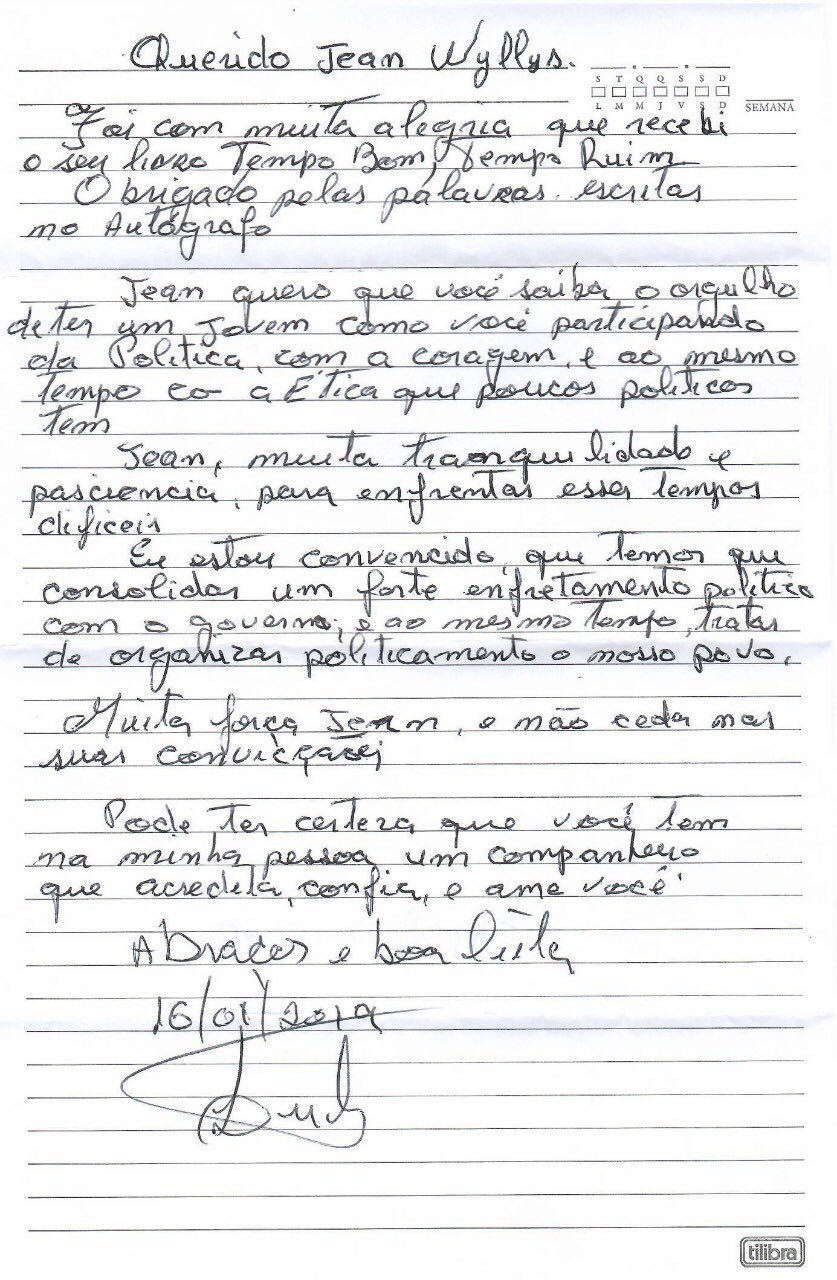 Querido Jean Wyllys.
S T Q Q S S D
L M M J V S D
SEMANA
Foi com muita alegria que recebi
o seu livro Tempo Bom, Tempo Ruim
Obrigado pelas palavras escritas
no Autógrafo
Jean quero que você saiba o orgulho
de ter um jovem como você participando
da Politica, com a coragem, e ao mesmo
tempo co a Etica que poucos politicos
tem
Jean, muita tranquilidade e
pasciencia, para enfrentar esses tempos
dificeis
Eu estou convencido, que temos que
consolidar um forte enfretamento politico
com o governo, e ao mesmo tempo, tratar
de organizar politicamente o nosso povo.
Muita força Jean, e não ceda nas
suas convicções
Pode ter certeza que você tem
na minha pessoa um companheiro
que acredita, confia, e ama você
Abraços e boa luta
16/01/2019
tilibra